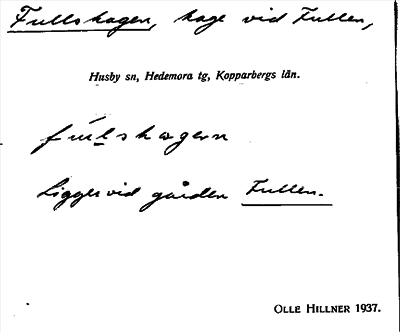 Fullshagen, hage vid Fullen,
Husby sn, Hedemora tg, Kopparbergs län.
fulshagern
Ligger vid gården Fullen.
OLLE HILLNER 1937.